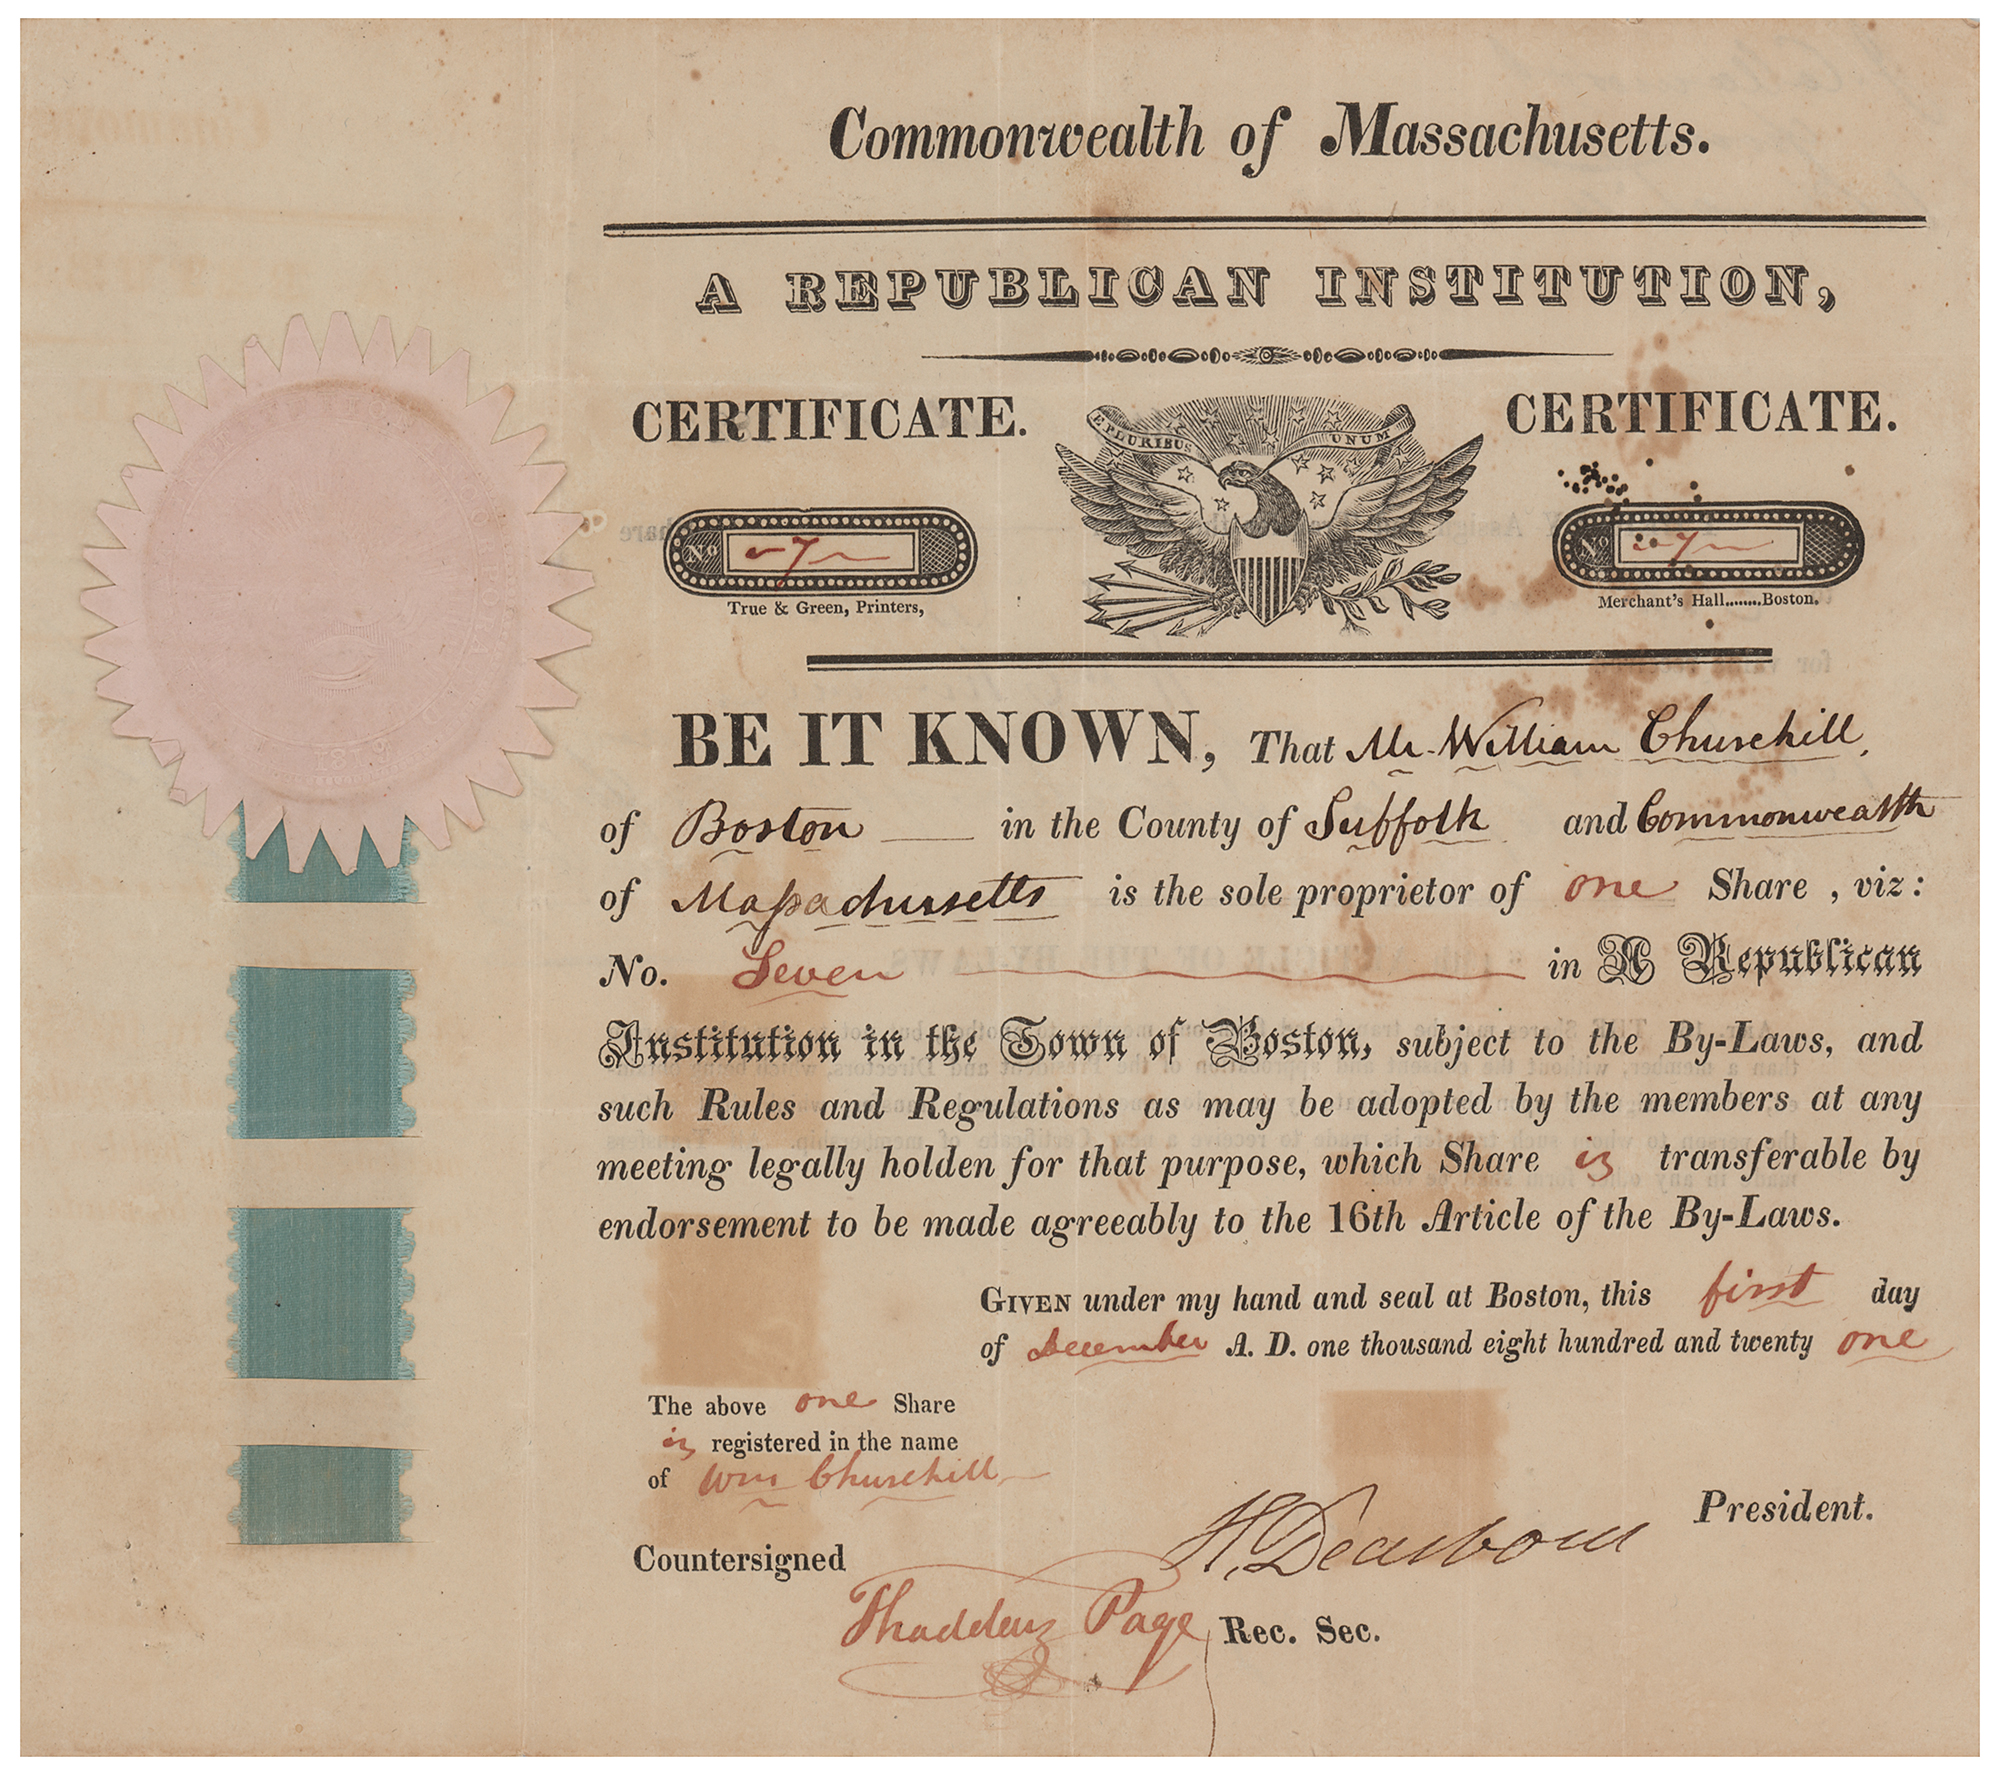 Commonwealth of Massachusetts.
A REPUBLICAN INSTITUTION,
CERTIFICATE.
E PLURIBUS UNUM
CERTIFICATE.
No 7
No 7
True & Green, Printers,
Merchant's Hall........Boston.
BE IT KNOWN, That Mr. William Churchill,
of Boston in the County of Suffolk and Commonwealth
of Massachusetts is the sole proprietor of one Share , viz:
No. Seven in A Republican
Institution in the Town of Boston, subject to the By-Laws, and
such Rules and Regulations as may be adopted by the members at any
meeting legally holden for that purpose, which Share is transferable by
endorsement to be made agreeably to the 16th Article of the By-Laws.
GIVEN under my hand and seal at Boston, this first day
of December A. D. one thousand eight hundred and twenty one
The above one Share
is registered in the name
of Wm Churchill
H. Dearborn President.
Countersigned
Thaddeus Page Rec. Sec.